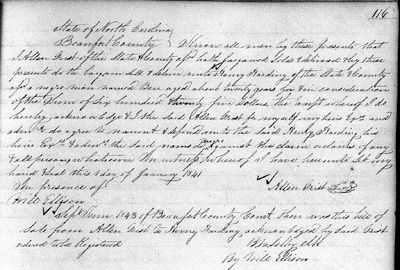 116
State of North Carolina
Beaufort County } Know all men by these presents that
I Allen Grist of the State & County afsd hath bargained sold & delivered & by these
presents do bargain sell & deliver unto Henry Harding of the State & County
afsd a negro man named Ben aged about twenty years for & in consideration
of the sum of Six hundred twenty five dollars, the receipt whereof I do
hereby acknowledge & I the said Allen Grist for myself my heirs Exrs and
admrs do agree to warrant & defend unto the said Henry Harding his
heirs Exrs & admrs the said named Against the claim or claims of any
& all persons whatsoever In witness whereof I have hereunto set my
hand & seal this day of January 1841
In presence of Allen Grist Seal
Will Ellison
Sept Term 1843 of Beaufort County Court Then was this bill of
Sale from Allen Grist to Henry Harding acknowledged by said Grist
ordered to be Registered
By Will Ellison